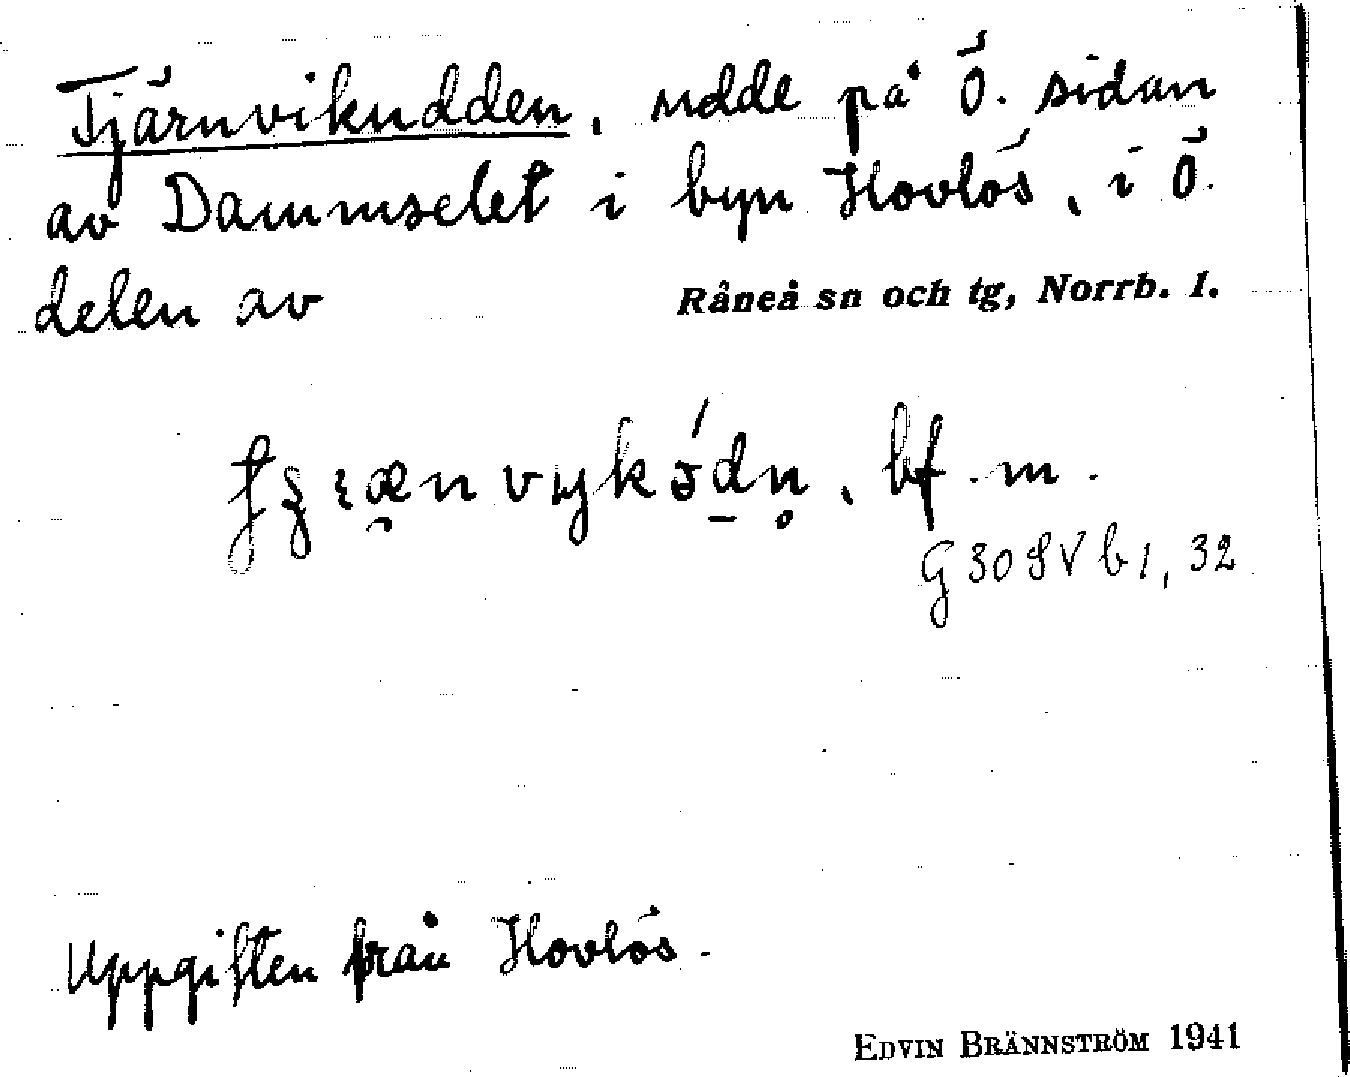 Tjärnvikudden, udde på ö. sidan
av Dammselet i byn Hovlös, i ö.
delen av Råneå sn och tg, Norrb. l.
bf. m.
G 30 S V b 1, 32
Uppgiften från Hovlös.
EDVIN BRÄNNSTRÖM 1941